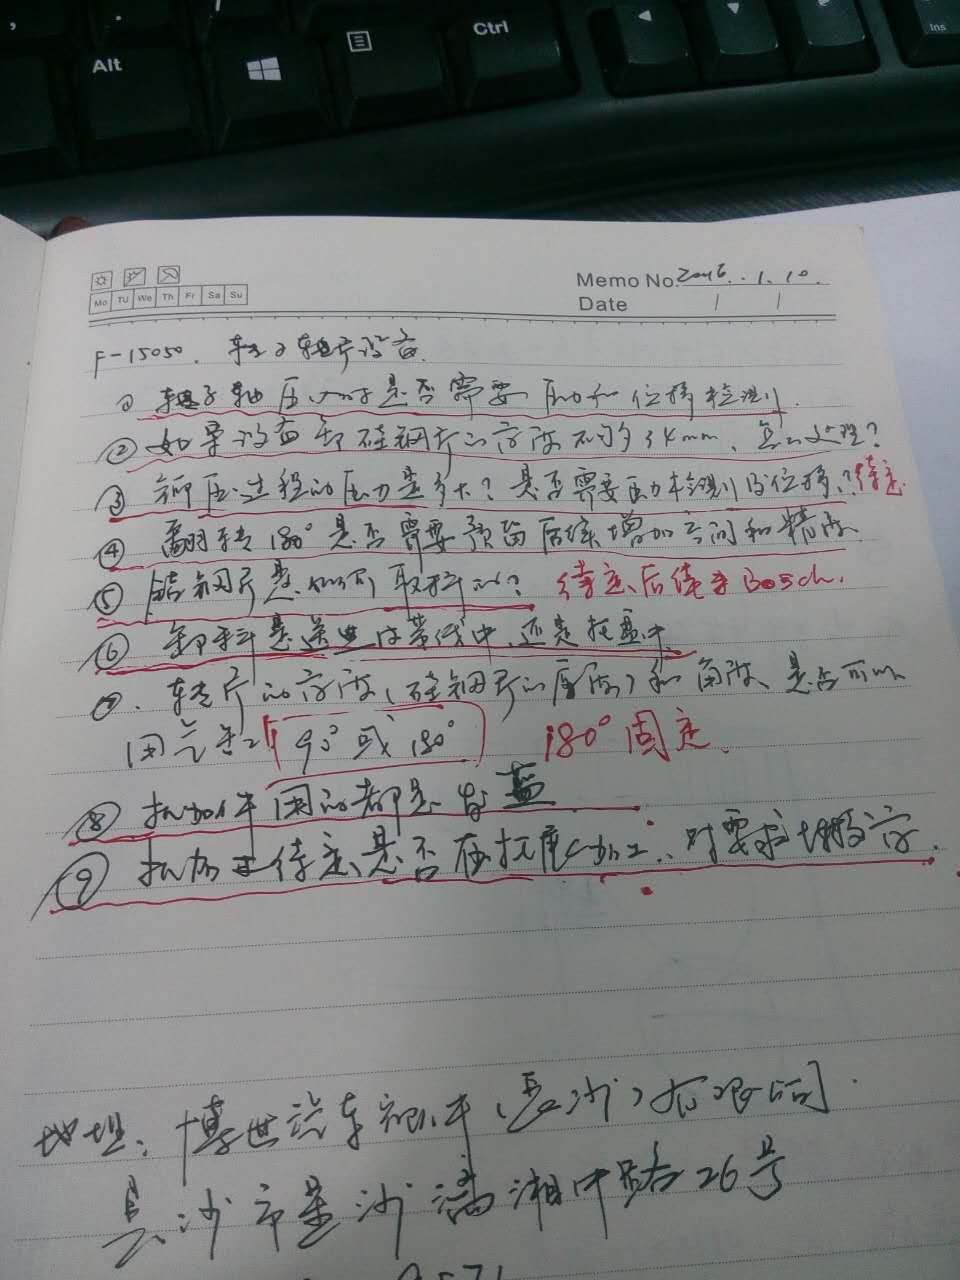 Alt
Ctrl
Ins
Mo Tu We Th Fr Sa Su
Memo No. 2016.1.10.
Date / /
F-15050. 转子转片设备
① 转子轴压入时是否需要压力和位移检测
② 如果设备 硅钢片的高度不够34mm、怎么处理?
③ 铆压过程的压力是多大? 是否需要压力检测及位移? 待定
④ 翻转180°是否需要预留后续增加空间和精度
⑤ 硅钢片是如何取料的? 待定后续来Bosch.
⑥ 卸料是送 皮带线中 还是托盘中
⑦. 转片的高度(硅钢片的厚度)和角度、是否可以
因 90°或180° 180°固定.
⑧ 机加件 国的都是发蓝
⑨ 机加 待定 是否 在 加工、对要求
地址: 博世汽车部件(长沙)有限公司.
长沙市星沙漓湘中路26号